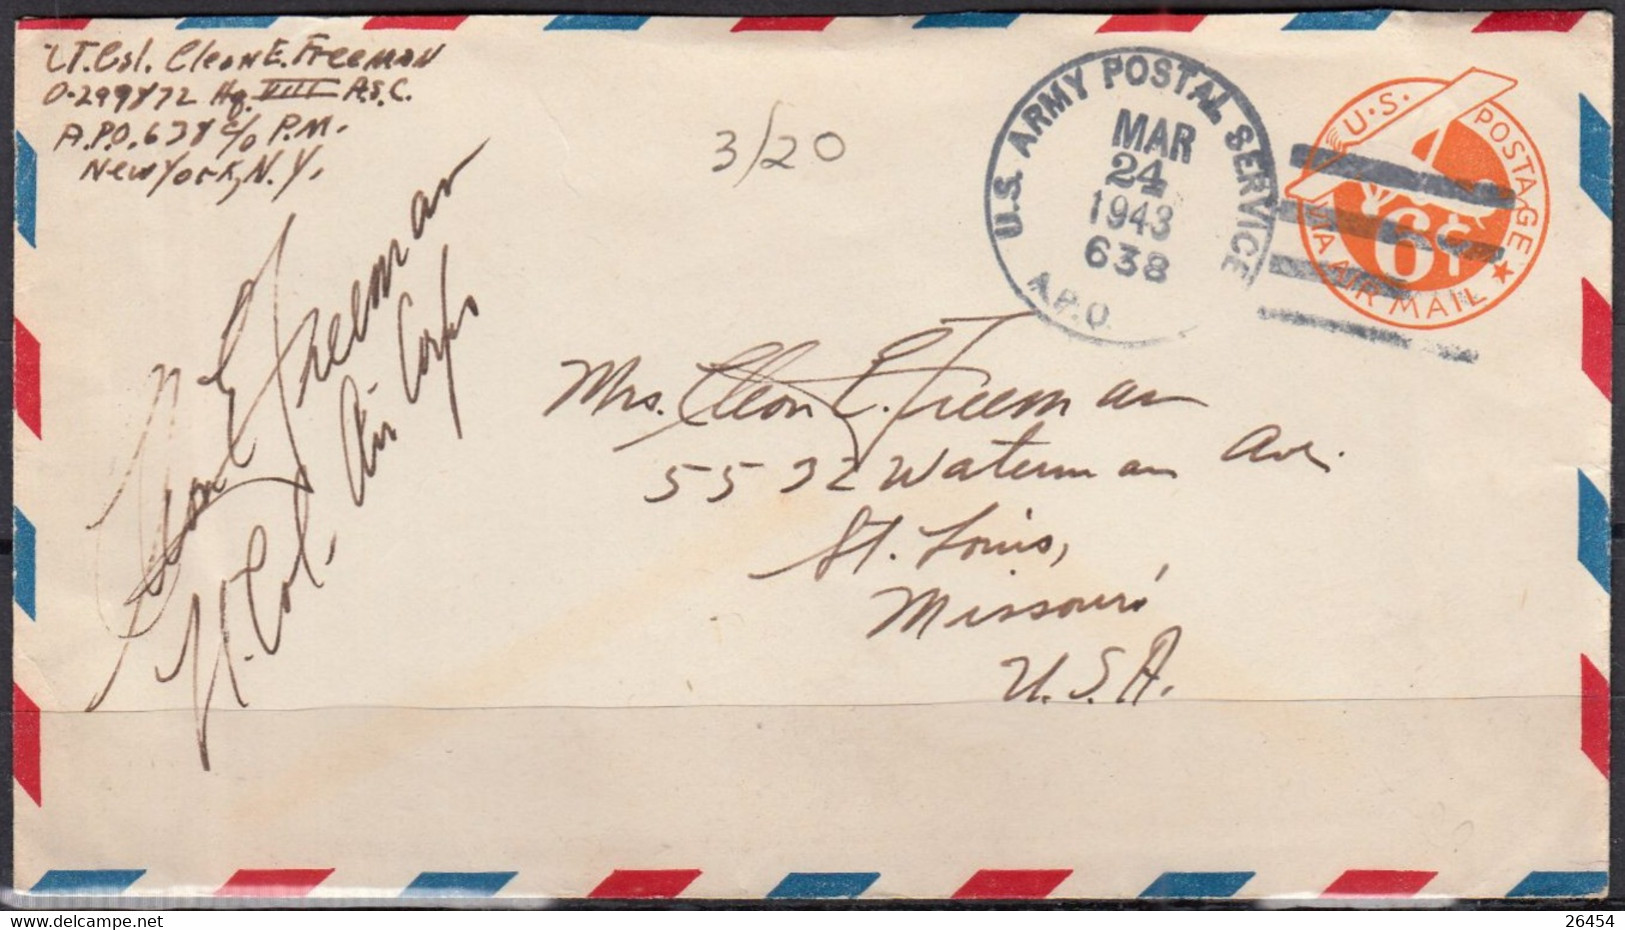 Lt. Col. Cleon E. Freeman
O-299872 Hq. VIII A.S.C.
A.P.O. 638 c/o P.M.
New York, N.Y.
3/20
U.S. ARMY POSTAL SERVICE
MAR
24
1943
638
A.P.O.
U.S. POSTAGE
6¢
VIA AIR MAIL
Cleon E. Freeman
Lt. Col. Air Corps
Mrs. Cleon E. Freeman
5532 Waterman Ave.
St. Louis,
Missouri
U.S.A.
delcampe.net
karnak
26454